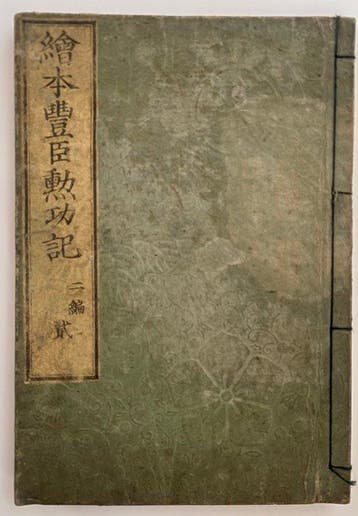 繪本豐臣勲功記
二編 貳